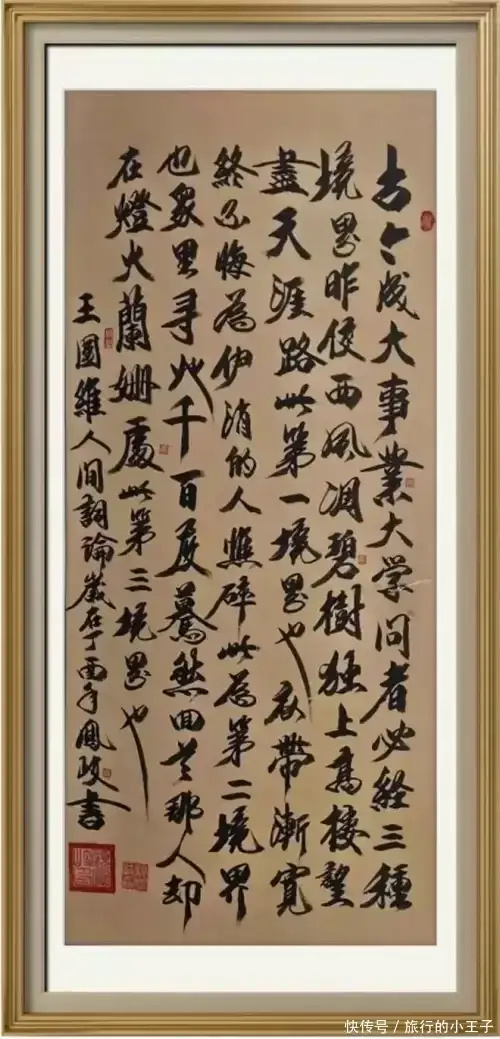 古今成大事業大学问者必经三種
境界昨夜西风凋碧樹独上高楼望
盡天涯路此第一境界也衣帶漸宽
終不悔為伊消的人憔碎此為第二境界
也衆里寻他千百度驀然回首那人却
在燈火蘭姗處此第三境界也
王國維人间詞論歲在丁酉年鳳書
快传号 / 旅行的小王子